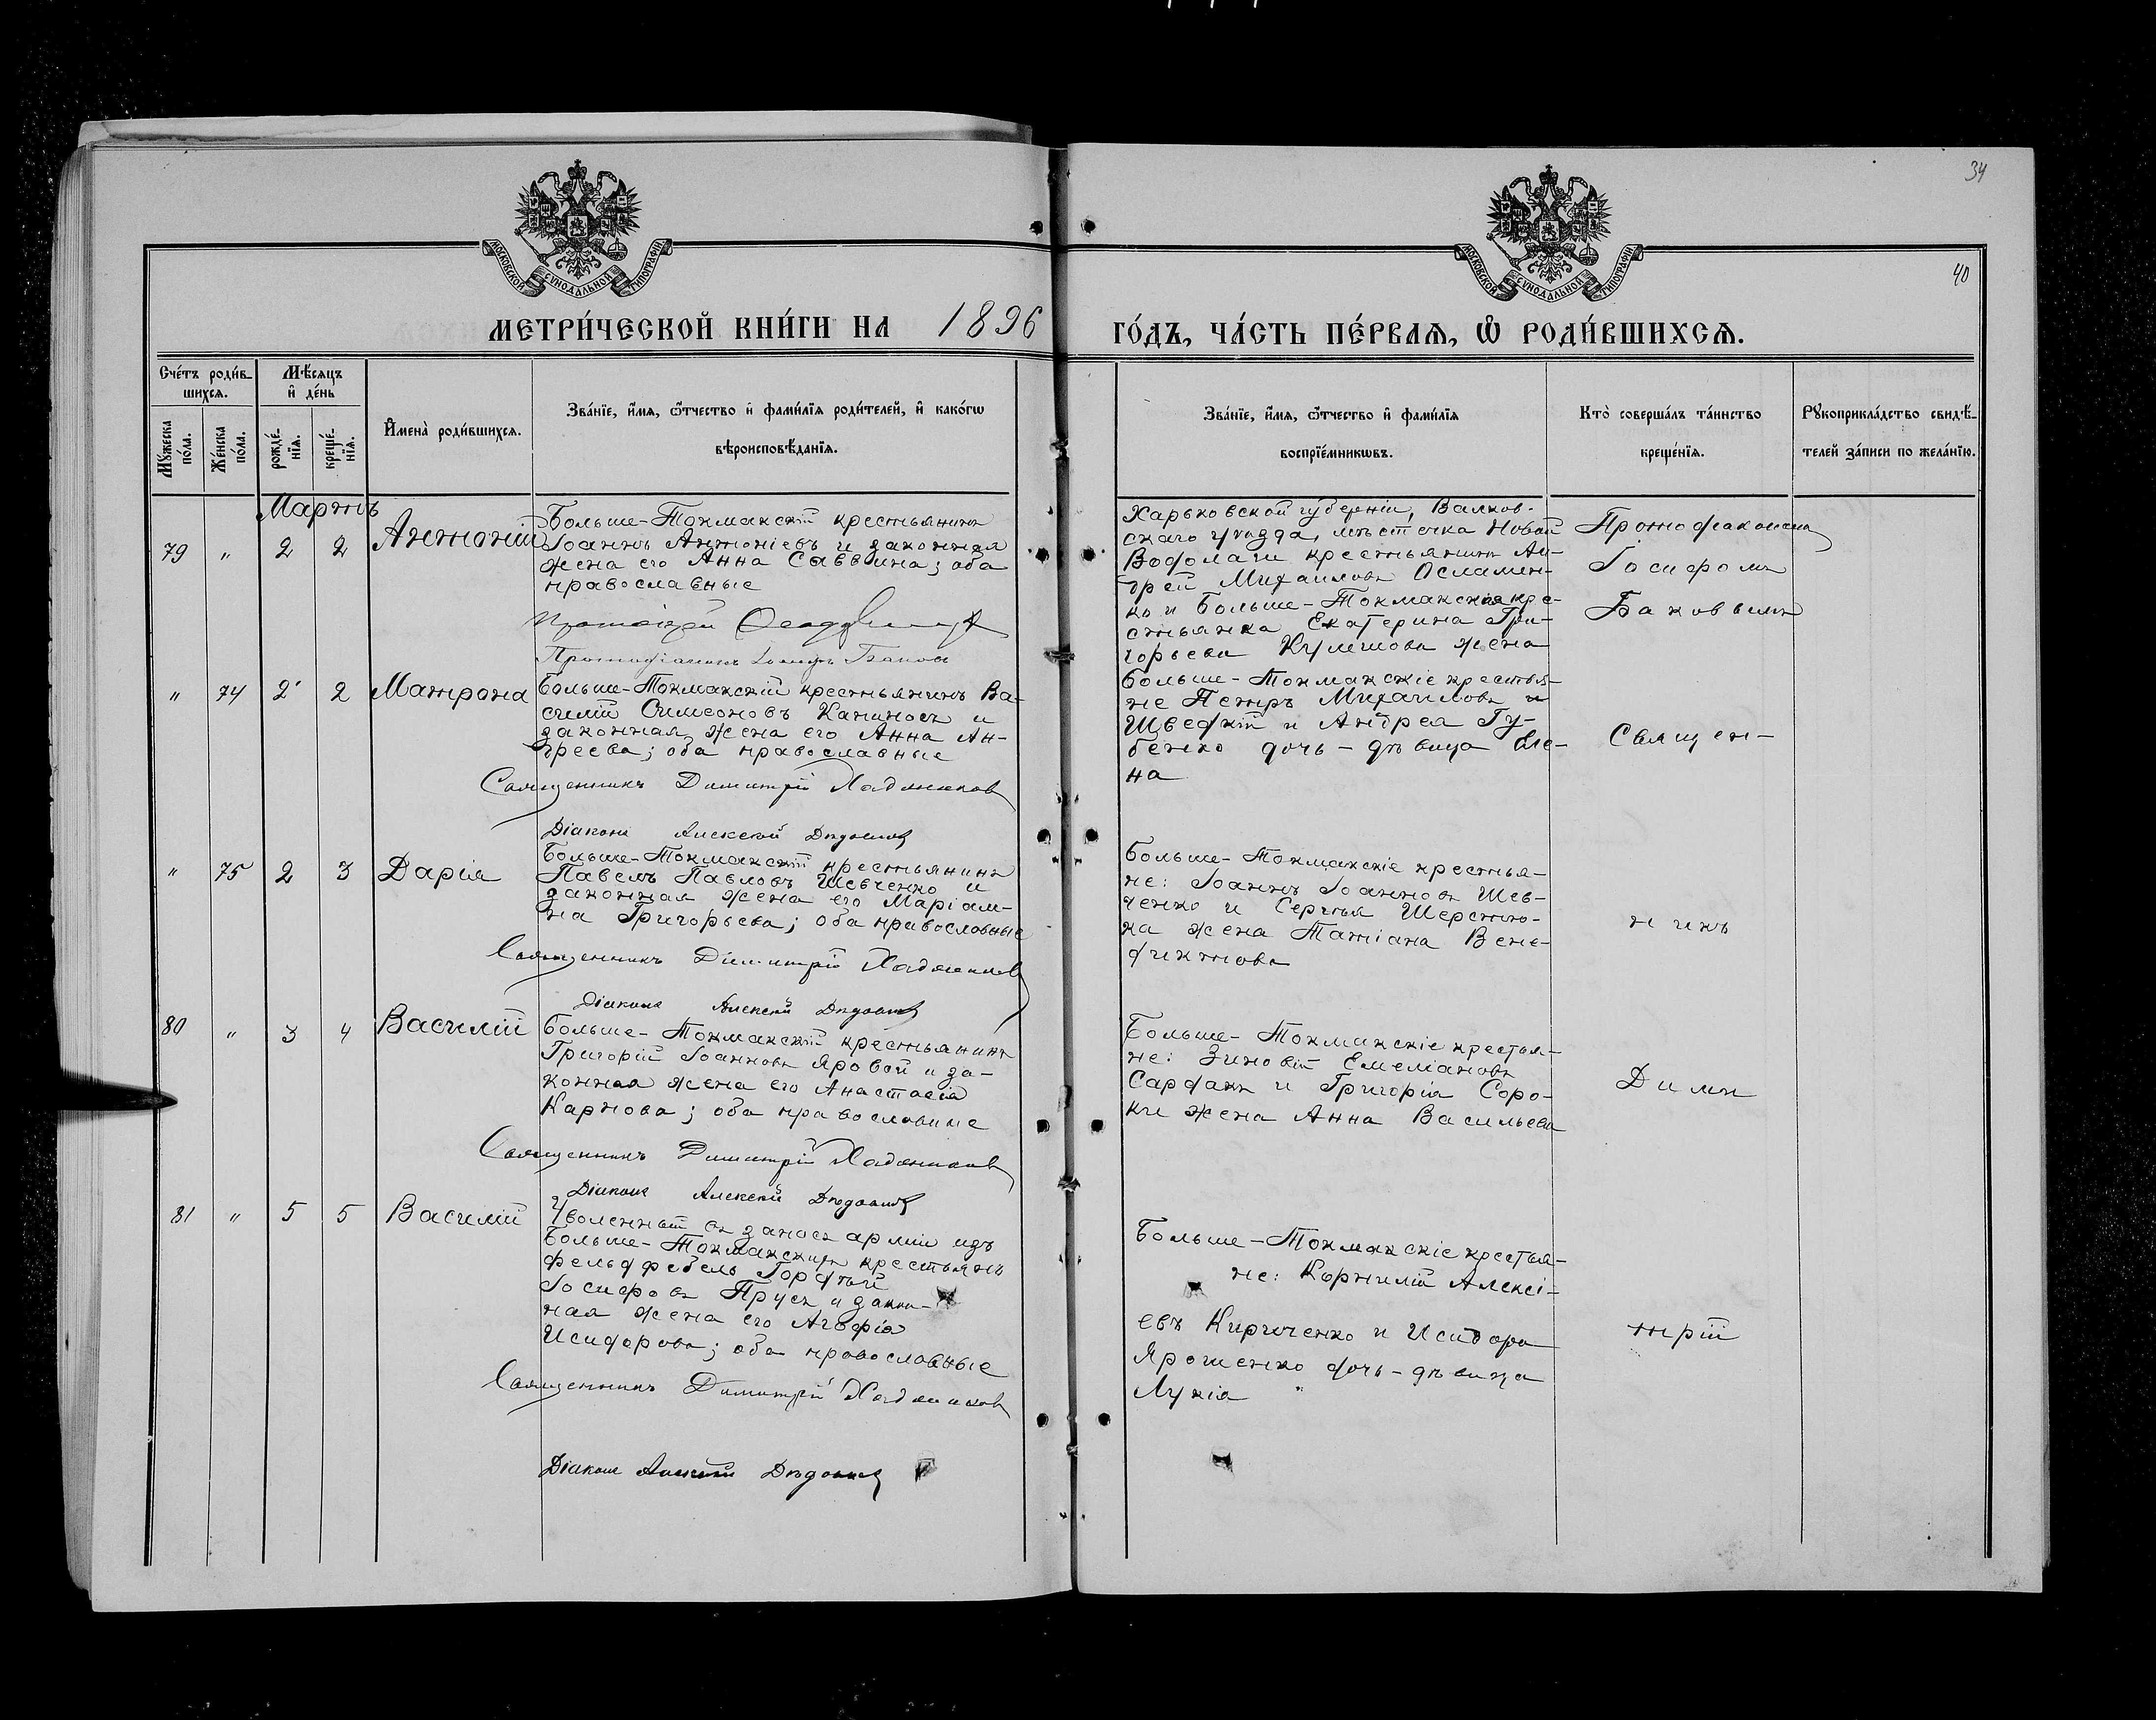 34
40
МОСКОВСКОЙ СѴНОДАЛЬНОЙ ТИПОГРАФІИ
МОСКОВСКОЙ СѴНОДАЛЬНОЙ ТИПОГРАФІИ
МЕТРИ́ЧЕСКОЙ КНИ́ГИ НА 1896
ГО́ДЪ, ЧА́СТЬ ПЕ́РВАѦ, Ѡ҆ РОДИ́ВШИХСѦ.
Счетъ роди́в-
шихсѧ.
Мѣ́сѧцъ
и҆ де́нь
Мꙋжеска
по́ла.
Же́нска
по́ла.
рожде́-
нїѧ.
креще́-
нїѧ.
И҆мена̀ роди́вшихсѧ.
Зва́нїе, и҆́мѧ, ѻ҆́тчество и҆ фами́лїѧ роди́телей, и҆ како́гѡ
вѣроисповѣ́данїѧ.
Зва́нїе, и҆́мѧ, ѻ҆́тчество и҆ фами́лїѧ
воспрїе́мникѡвъ.
Кто̀ соверша́лъ та́инство
креще́нїѧ.
Рꙋкоприкла́дство свидѣ́-
телей за́писи по жела́нїю.
Мартъ
79 " 2 2 Антоній
Больше-Токмакскій крестьянинъ
Іоаннъ Антоніевъ и законная
жена его Анна Саввина; оба
православные
Протоіерей
Протодіаконъ Іосифъ Баковъ
Харьковской губерніи, Валков-
скаго уѣзда, мѣстечка Новой
Водолаги крестьянинъ Ан-
дрей Михаиловъ Осламен-
ко и Больше-Токмакская кре-
стьянка Екатерина Гри-
горьева Кулешова жена
Протодіакономъ
Іосифомъ
Баковымъ
" 74 2 2 Матрона
Больше-Токмакскій крестьянинъ Ва-
силій Симеоновъ Капиносъ и
законная жена его Анна Ан-
дреева; оба православные
Священникъ Димитрій
Діаконъ Алексій
Больше-Токмакскіе крестья-
не Петръ Михаиловъ и
Шведкій и Андрея Гу-
бенко дочь-дѣвица Еле-
на
Священ-
" 75 2 3 Дарія
Больше-Токмакскій крестьянинъ
Павелъ Павловъ Шевченко и
законная жена его Маріам-
на Григорьева; оба православные
Священникъ Димитрій
Діаконъ Алексій
Больше-Токмакскіе крестья-
не: Іоаннъ Іоанновъ Шев-
ченко и Сергѣя Шерстю-
ка жена Татіана Вене-
диктова
никъ
80 " 3 4 Василій
Больше-Токмакскій крестьянинъ
Григорій Іоанновъ Яровой и за-
конная жена его Анастасія
Карпова; оба православные
Священникъ Димитрій
Діаконъ Алексій
Больше-Токмакскіе крестья-
не: Зиновій Емеліановъ
Сардакъ и Григорія Соро-
ки жена Анна Васильева
Дими
81 " 5 5 Василій
Уволенный въ запасъ арміи изъ
Больше-Токмакскихъ крестьянъ
фельдфебель Гордѣй
Іосифовъ Прусъ и закон-
ная жена его Агафія
Исидорова; оба православные
Священникъ Димитрій
Діаконъ Алексій
Больше-Токмакскіе крестья-
не: Корнилій Алексі-
евъ Кириченко и Исидора
Ярошенко дочь-дѣвица
Лукія
трій